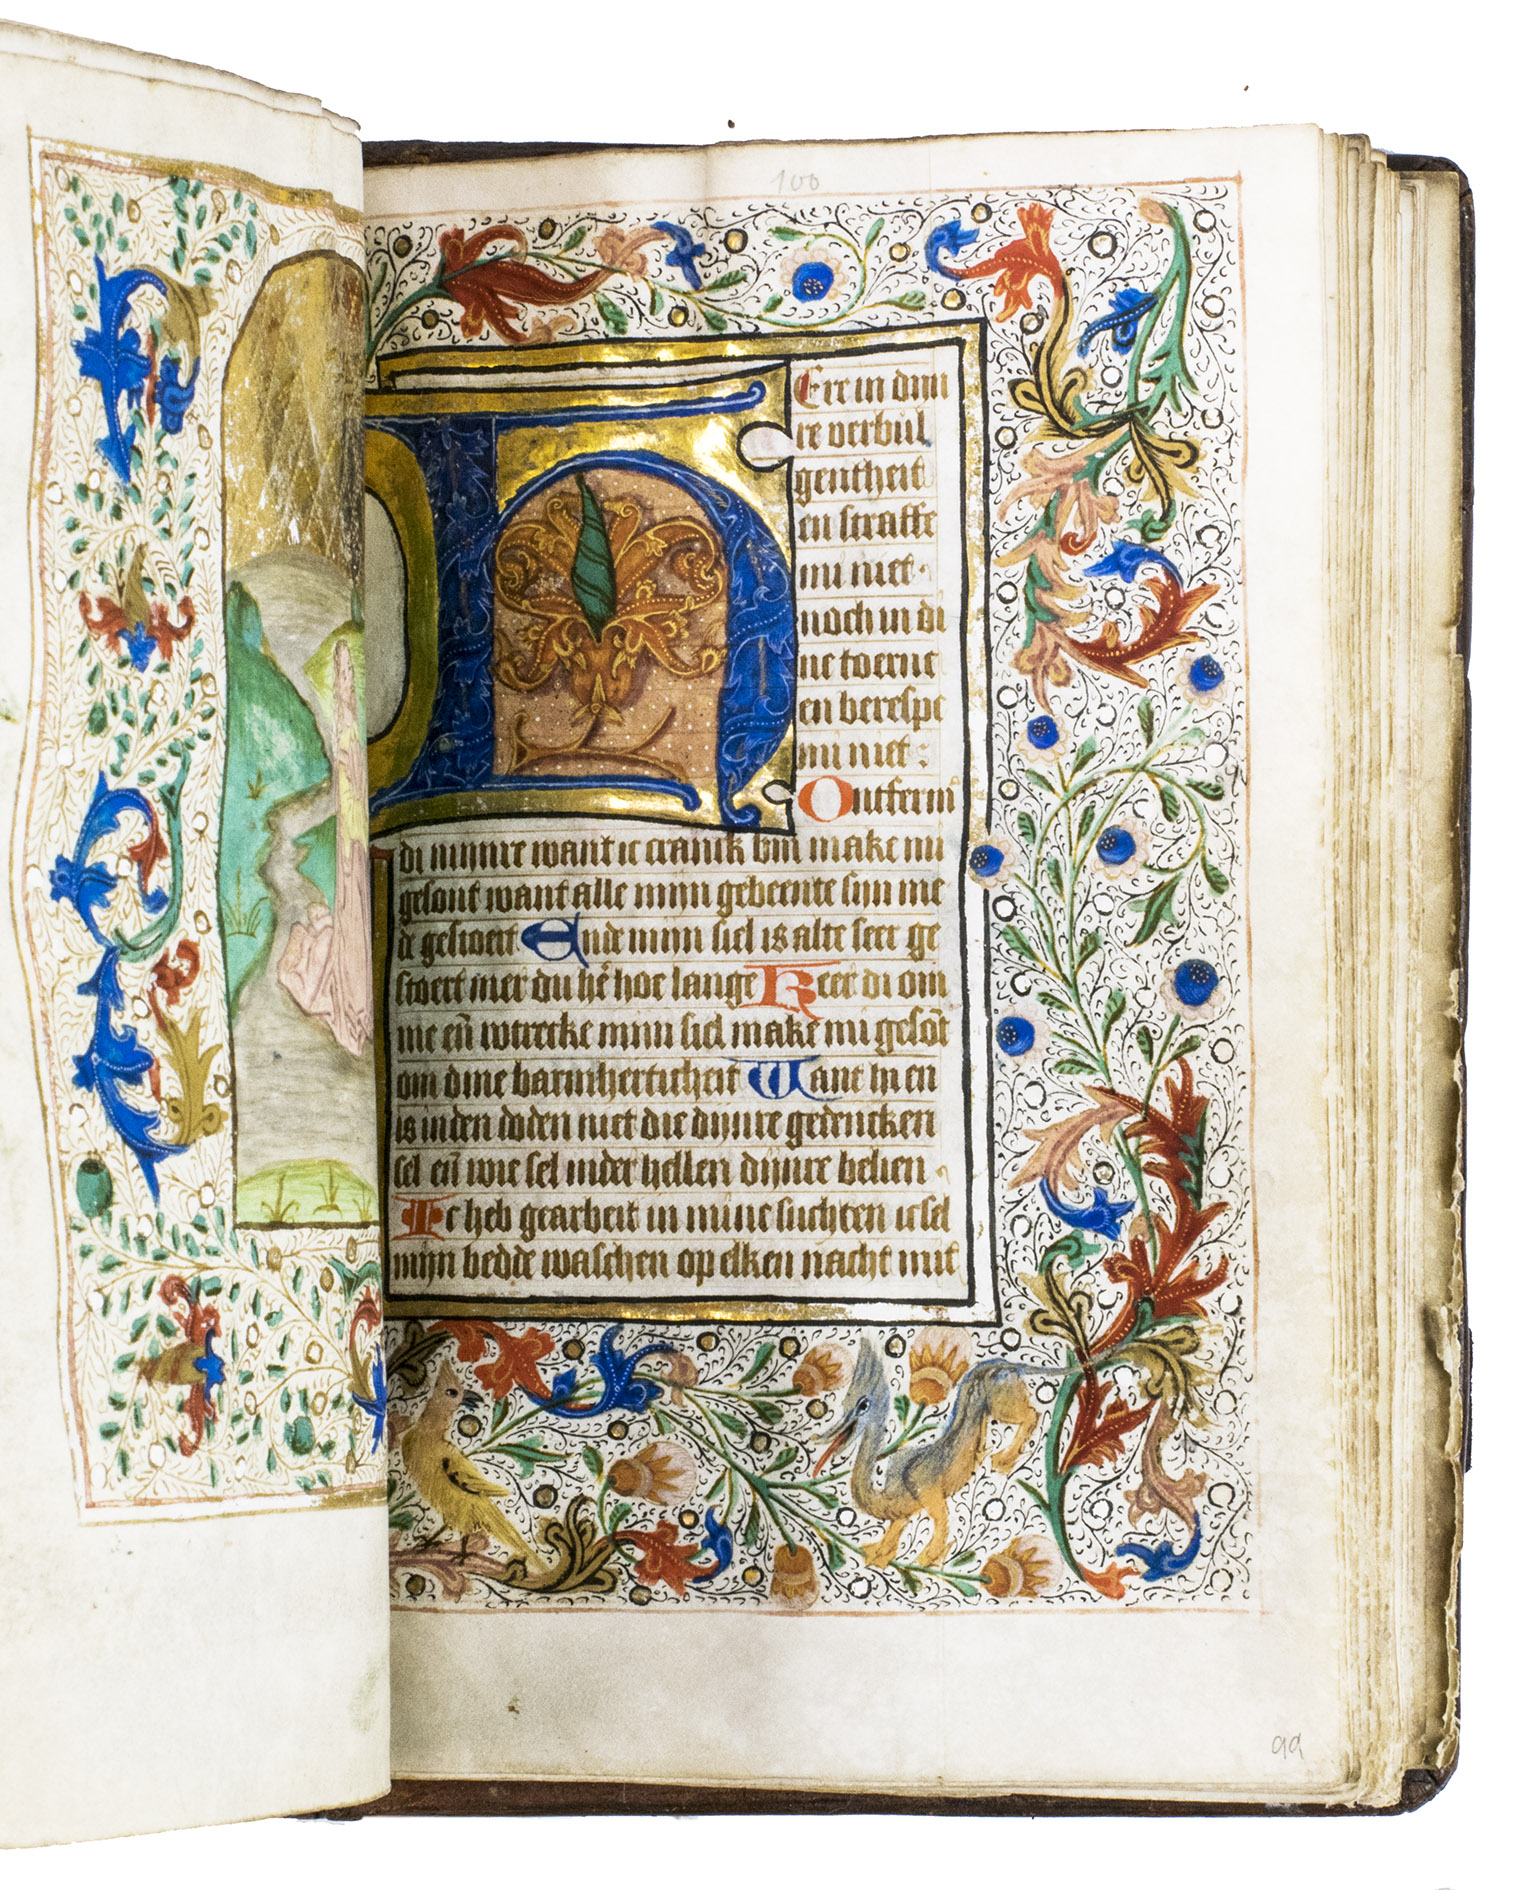 100
HEre in dinr
re verbul
gentheit
en straffe
mi niet·
noch in di
ne toerne
en berespe
mi niet :
Ontferm̄
di mijnre want ic cranck bin make mi
gesont want alle mijn gebeente sijn me
de gestoert Ende mijn siel is alte seer ge
stoert mer du hēr hoe lange Keer di om
me en̄ wtrecke mijn siel make mi gesōt
om dine barmherticheit Want hi en
is inden doden niet die dijnre gedencken
sel en̄ wie sel inder hellen dijnre belien
Ic heb gearbeit in mine suchten ic sel
mijn bedde waschen op elken nacht mit
99